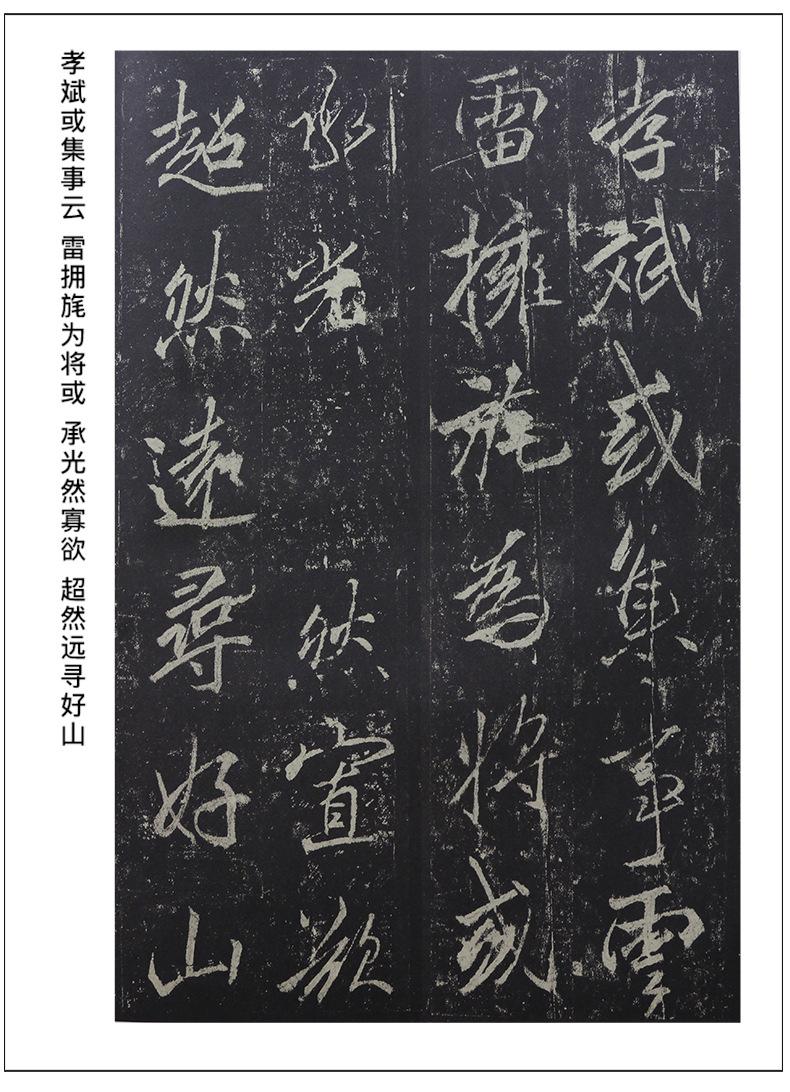 孝斌或集事雲
雷擁旄為將或
承光 然寡欲
超然遠尋好山
孝斌或集事云 雷拥旄为将或 承光然寡欲 超然远寻好山